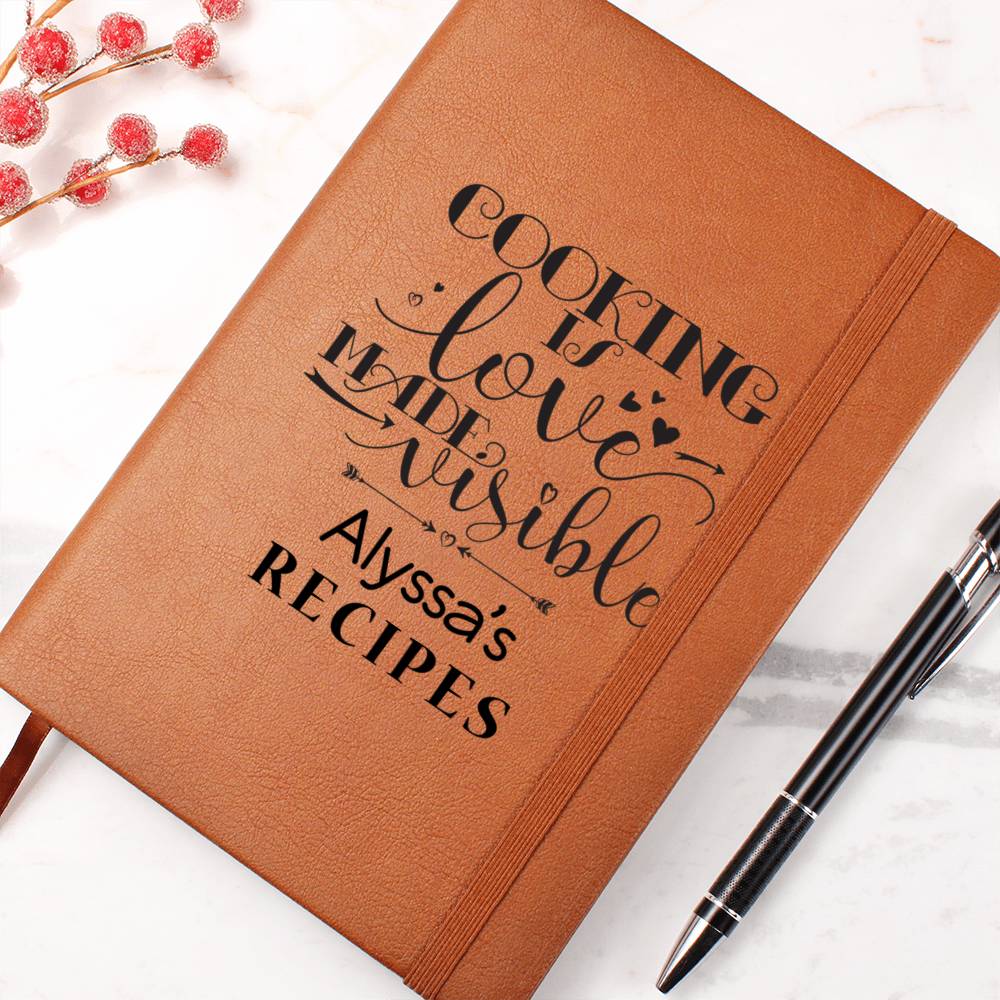 COOKING
IS
love
MADE
visible
Alyssa's
RECIPES